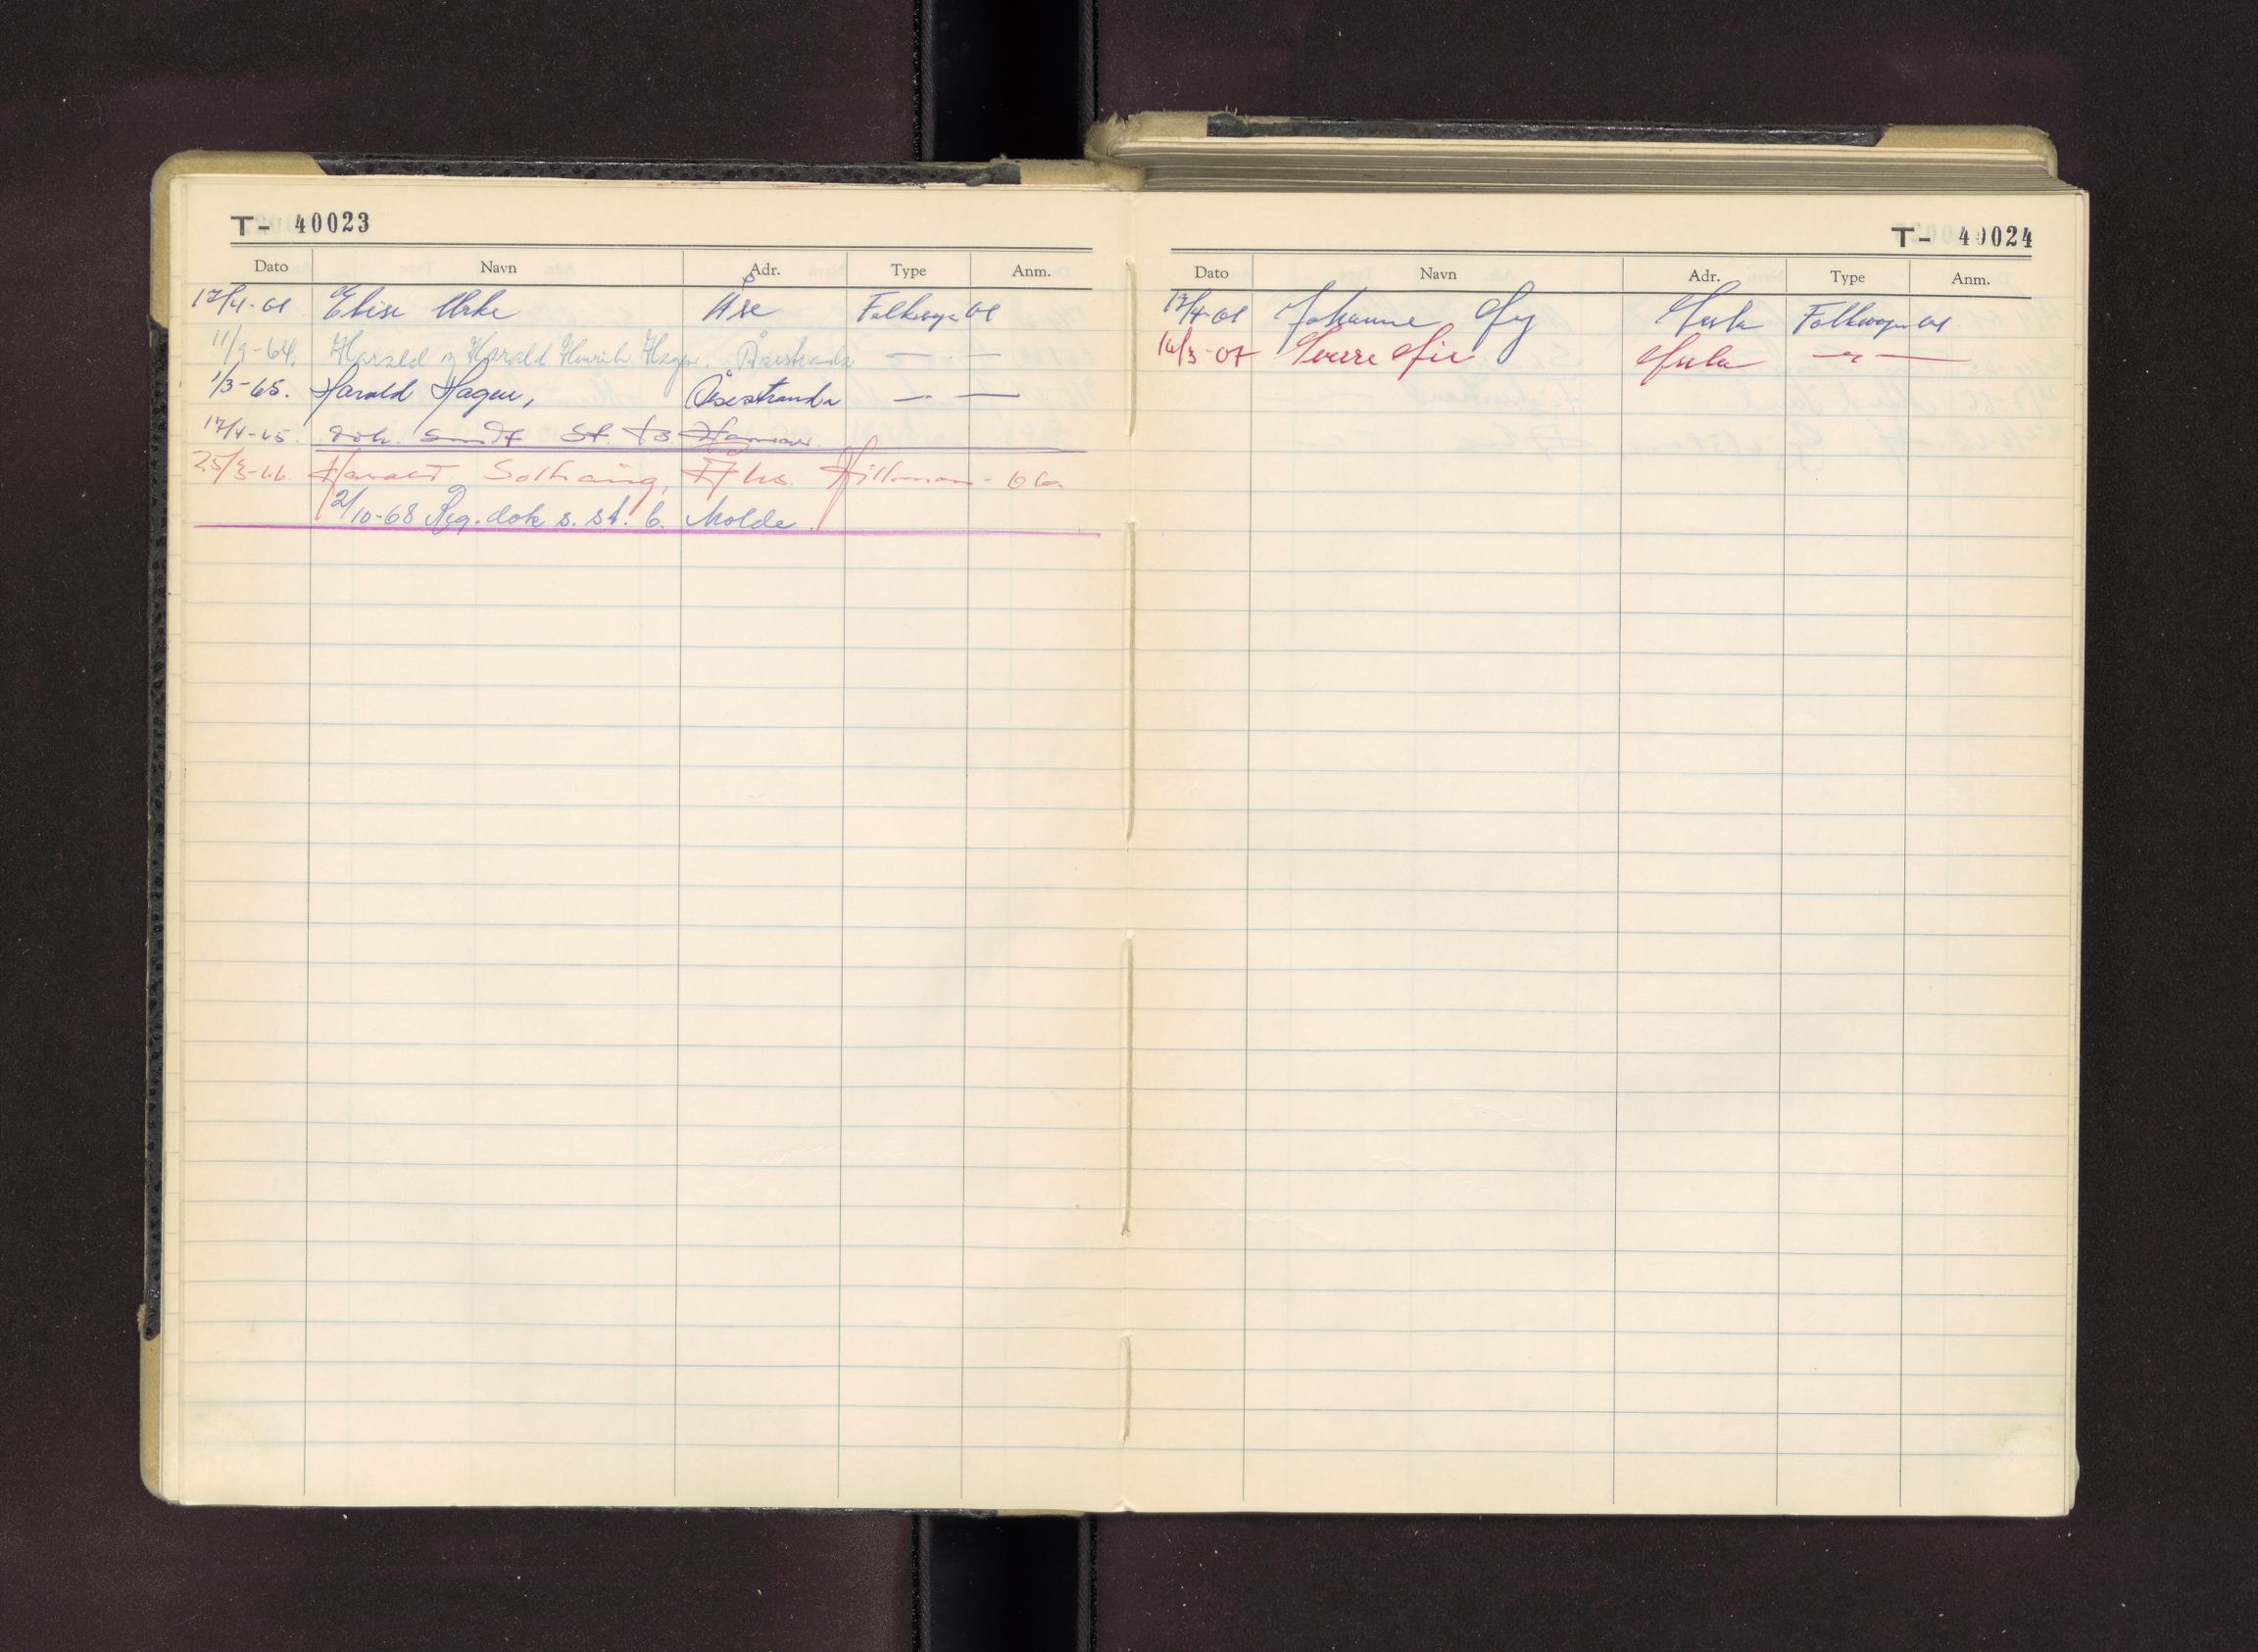 T- 40023
Dato Navn Adr. Type Anm.
17/4-61 Elise Urke Åse Folkevogn 61
11/9-64. Harald og Harald Henrik Hagen. Åsestranda — " —
1/3-65. Harald Hagen, Åsestranda — " —
17/4-65. dok. sendt St. b. Hamar.
25/3-66. Harald Solhaug, Hillman - 66
2/10-68 Reg. dok s. st. b. Molde.
T- 40024
Dato Navn Adr. Type Anm.
17/4-61 Johanne Folkevogn 61
16/3-67 Sverre — " —